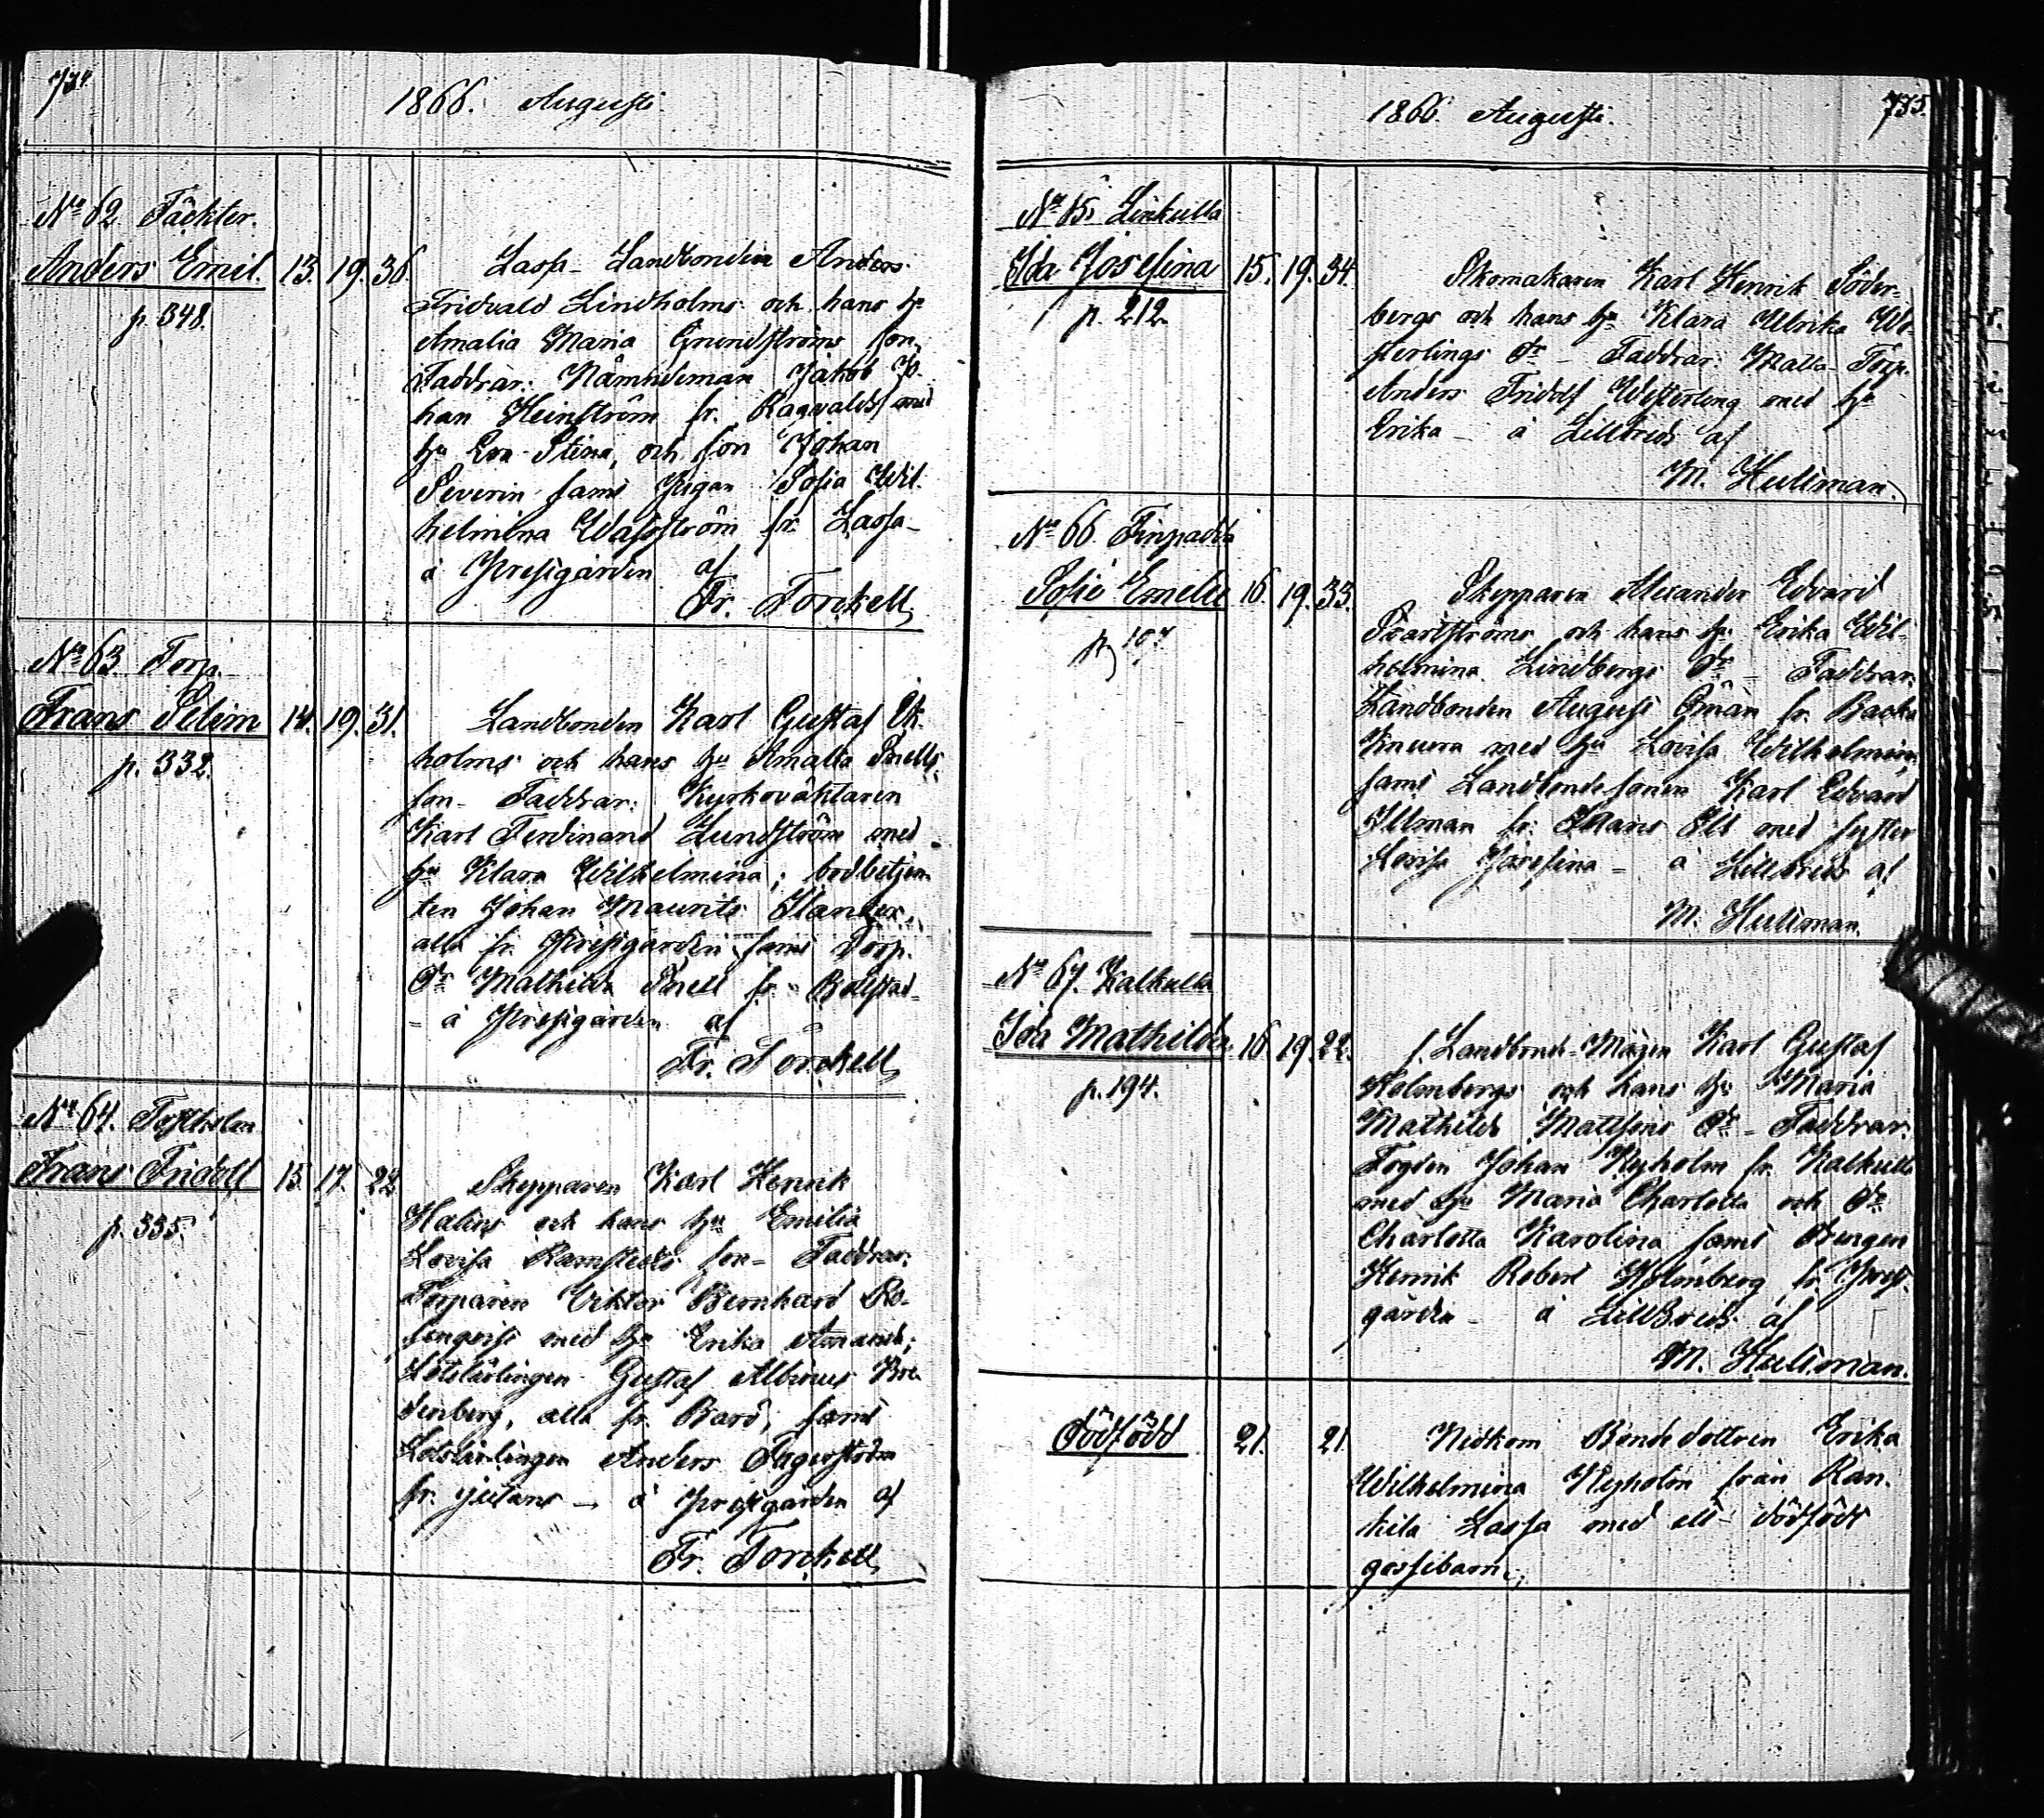 734.
1866. Augusti.
No 62. Täckter.
Anders Emil. 13. 19. 36.
p. 348.
Lassa- Landbonden Anders
Fridvald Lindholms och hans hu
Amalia Maria Grundströms son,
Faddrar: Nämndeman Jakob Jo-
han Heinström fr. Ragvalds med
hu Eva Stina, och son Johan
Severin samt Pigan Sofia Wil-
helmina Wassström fr. Lassa-
å Prestgården af
Fr. Torckell
No 63. Torp.
Frans Selim 14. 19. 31.
p. 332.
Landbonden Karl Gustaf Ek-
holms och hans hu Amalia Snells
son- Faddrar: Kyrkoväktaren
Karl Ferdinand Lundström med
hu Klara Wilhelmina; bodbetjen-
ten Johan Maurits
alla fr. Prestgården samt Torp.
dr Mathilda Snell fr.
- å Prestgården af
Fr. Torckell
No 64.
Frans Fridolf 15. 17. 22.
p. 335.
Skepparen Karl Henrik
och hans hu Emilia
Lovisa Ramstedts son- Faddrar:
Torparen Viktor Bernhard Ro-
med hu Erika Amanda;
Lotslärlingen Gustaf Albinus
alla fr. samt
Lotslärlingen Anders Fagerström
fr. - å Prestgården af
Fr. Torckell
735.
1866. Augusti.
No 65. Linkulla
Ida Josefina 15. 19. 34.
p. 212.
Skomakaren Karl Henrik Söder-
bergs och hans hu Klara Ulrika We-
sterlings dr - Faddrar: Malla- Torp.
Anders Fridolf Westerling med hu
Erika - å af
M. Hultman.
No 66. Finpadda
Sofie Emelie 16. 19. 33.
p. 107
Skepparen Alexander Edvard
Svartströms och hans hu Erika Wil-
helmina Lindbergs dr - Faddrar:
Landbonden August Öman fr. Backa
med hu Lovisa Wilhelmina,
samt Landbondesonen Karl Edvard
Illman fr. med syster
Lovisa Josefina - å af
M. Hultman.
No 67. Kalkulla
Ida Mathilda. 16. 19. 22.
p. 194.
f. Landbonde-Mågen Karl Gustaf
Holmbergs och hans hu Maria
Mathilda Mattsons dr - Faddrar:
Fogden Johan Nyholm fr. Kalkulla
med hu Maria Charlotta och dr
Charlotta Karolina samt Drengen
Henrik Robert Holmberg fr. Prest-
gården - å af
M. Hultman.
Dödfödd 21. 21.
Nedkom Bondedottren Erika
Wilhelmina Nyholm från Ran-
kila Lassa med ett dödfödt
gossebarn.